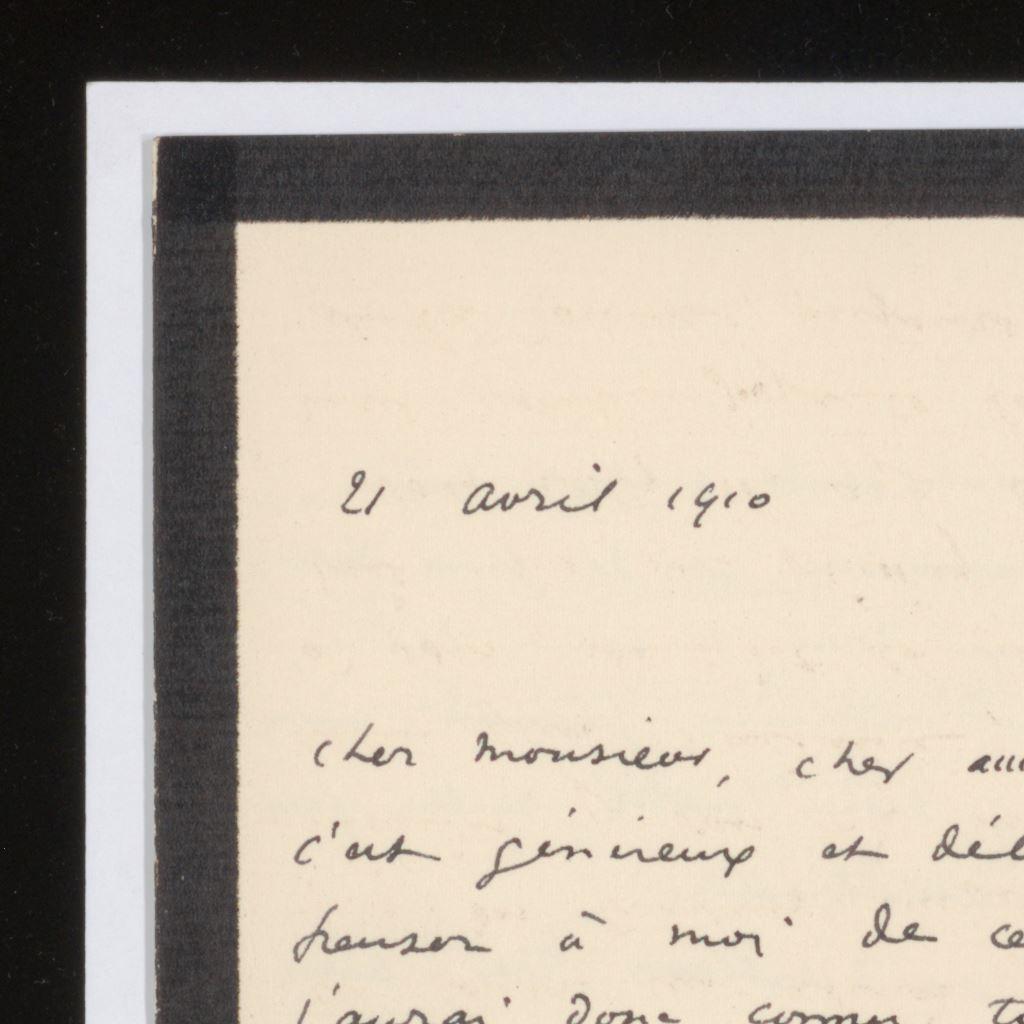 21 avril 1910
cher monsieur, cher
c'est généreux et
penser à moi de
j'aurai donc connu